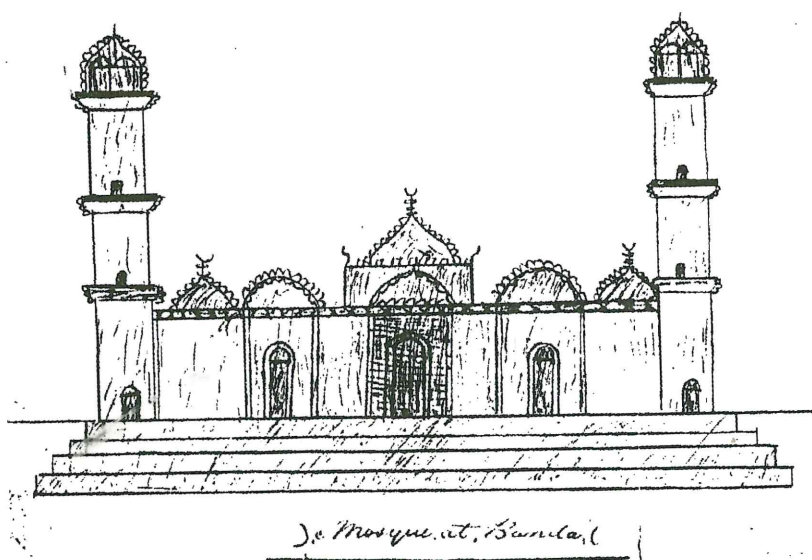 Mosque at Banda